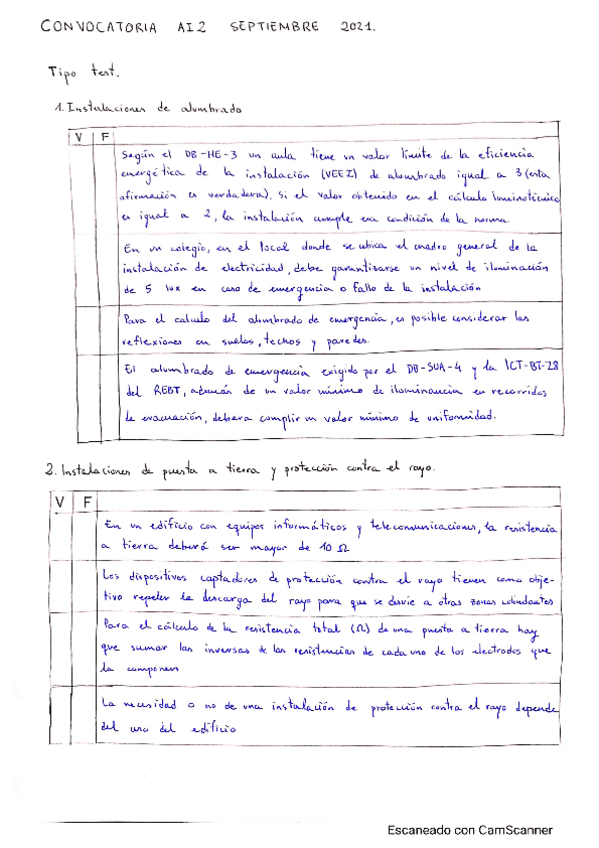 CONVOCATORIA AI2 SEPTIEMBRE 2021.
Tipo test.
1. Instalaciones de alumbrado
V F
Según el DB-HE-3 un aula tiene un valor límite de la eficiencia
energética de la instalación (VEEI) de alumbrado igual a 3 (esta
afirmación es verdadera). Si el valor obtenido en el cálculo luminotécnico
es igual a 2, la instalación cumple esa condición de la norma.
En un colegio, en el local donde se ubica el cuadro general de la
instalación de electricidad, debe garantizarse un nivel de iluminación
de 5 lux en caso de emergencia o fallo de la instalación
Para el calculo del alumbrado de emergencia, es posible considerar las
reflexiones en suelos, techos y paredes.
El alumbrado de emergencia exigido por el DB-SUA-4 y la ICT-BT-28
del REBT, además de un valor mínimo de iluminancia en recorridos
de evacuación, deberá complir un valor mínimo de uniformidad.
2. Instalaciones de puesta a tierra y protección contra el rayo.
V F
En un edificio con equipos informáticos y telecomunicaciones, la resistencia
a tierra deberá ser mayor de 10 Ω
Los dispositivos captadores de protección contra el rayo tienen como obje-
tivo repeler la descarga del rayo para que se desvíe a otras zonas colindantes
Para el cálculo de la resistencia total (Ω) de una puesta a tierra hay
que sumar las inversas de las resistencias de cada uno de los electrodos que
la componen
La necesidad o no de una instalación de protección contra el rayo depende
del uso del edificio
Escaneado con CamScanner